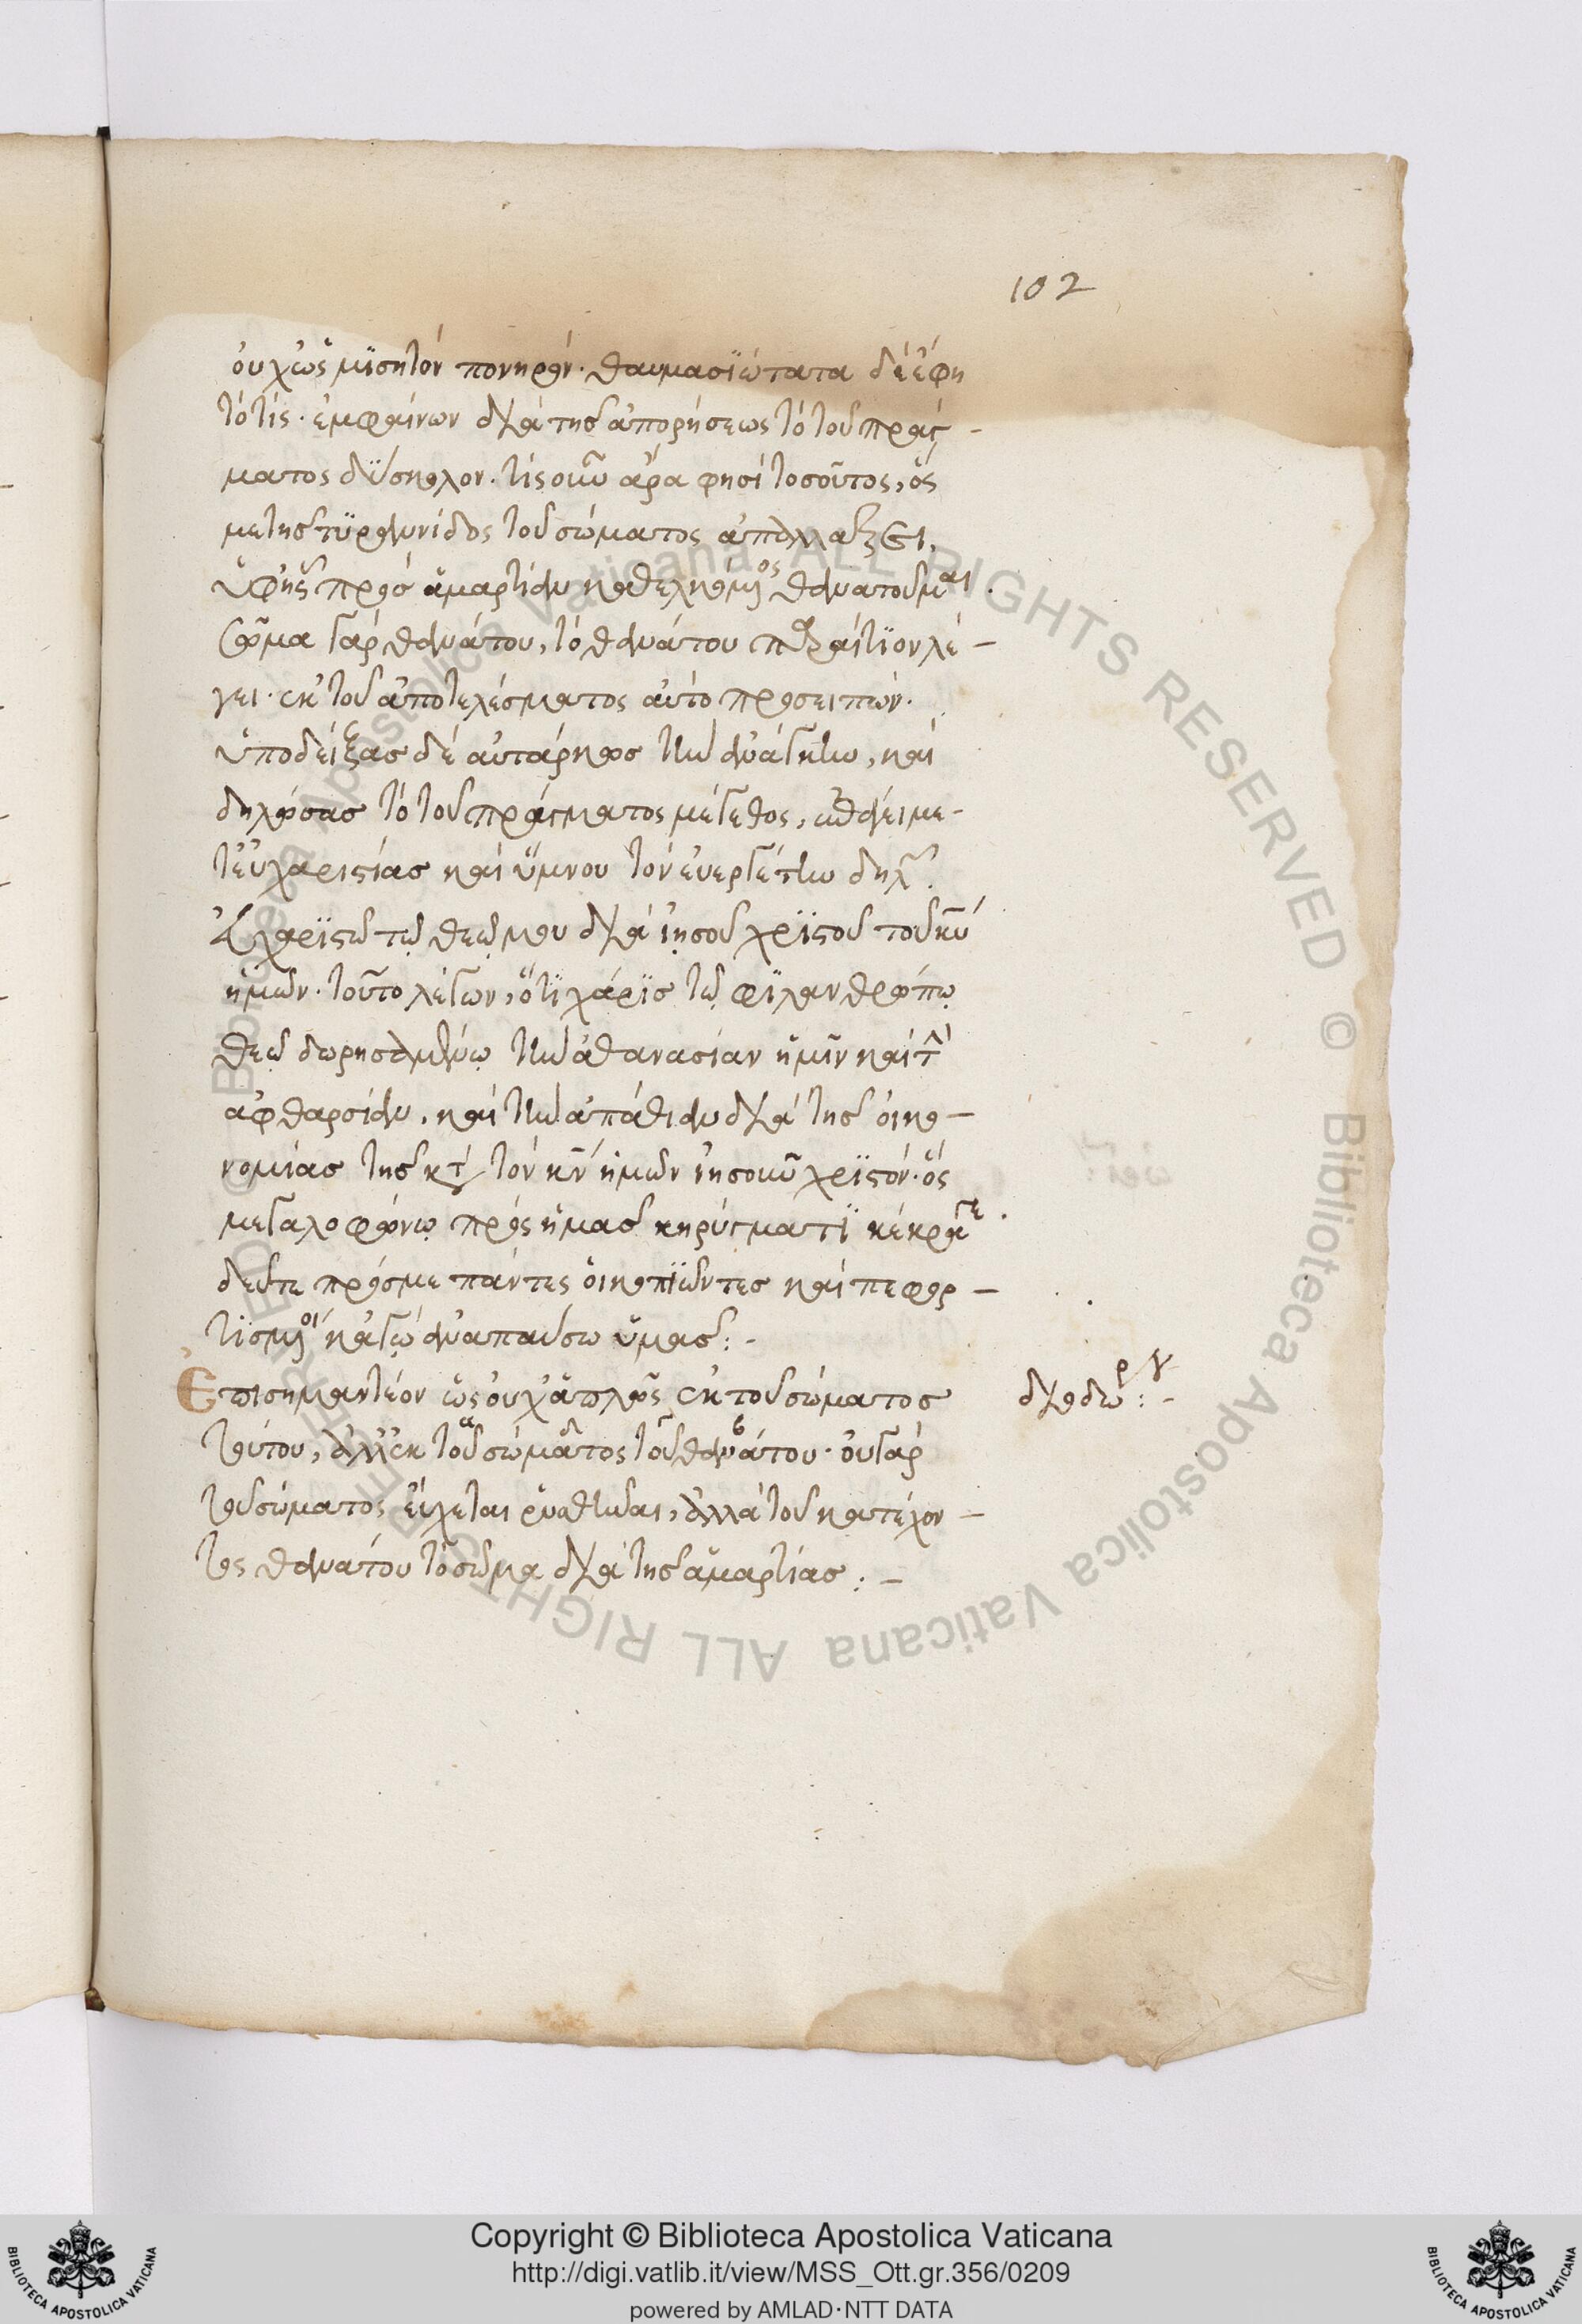 102
οὐχ ὡς μϊσητόν πονηρόν. θαυμασϊώτατα δέ ἔφη
τό τίς. ἐμφαίνων διὰ τῆς ἀπορήσεως τό τοῦ πράγ -
ματος δϋσηλον. τίς οὖν ἄρα φησί τοσοῦτος, ὅς
με τῆς τϋραννίδος τοῦ σώματος ἀπαλλάξει,
ὑφ' ἧς πρός ἁμαρτίαν καθελκόμενος θανατοῦμαι.
σῶμα γάρ θανάτου, τό θανάτου παραίτϊον λέ -
γει. ἐκ τοῦ ἀποτελέσματος αὐτό προσειπών.
ὑποδείξας δέ αὐτάρκως τήν ἀνάγκην, καί
δηλώσας τό τοῦ πράγματος μέγεθος, με -
τ' εὐχαριστίας καί ὕμνου τόν εὐεργέτην δηλ.
εὐχαρϊστῶ τῷ θεῷ μου διὰ ἰησοῦ χρϊστοῦ τοῦ κυ
ἡμῶν. τοῦτο λέγων, ὅτϊ χάρϊς τῷ φϊλανθρώπῳ
θεῷ δωρησαμένῳ τήν ἀθανασίαν ἡμῖν καί τ
ἀφθαρσίαν. καί τήν ἀπάθιαν διὰ τῆς οἰκο -
νομίας τῆς κατ τόν κν ἡμῶν ἰησοῦν χρϊστόν. ὅς
μεγαλοφώνῳ πρός ἡμᾶς κηρύγματϊ κέκραγε.
δεῦτε πρός με πάντες οἱ κοπϊῶντες καί πεφορ -
τϊσμένοι κἀγώ ἀναπαύσω ὑμᾶς: -
Ἐπισημαντέον ὡς οὐχ ἁπλῶς ἐκ τοῦ σώματος διοδώρ: -
τούτου, ἀλλ' ἐκ τοῦ σώματος τοῦ θανάτου. οὐ γάρ
τοῦ σώματος εὔχεται ῥυσθῆναι, ἀλλά τοῦ κατέχον -
τος θανάτου τό σῶμα διὰ τῆς ἁμαρτίας: -
Copyright © Biblioteca Apostolica Vaticana
http://digi.vatlib.it/view/MSS_Ott.gr.356/0209
powered by AMLAD·NTT DATA